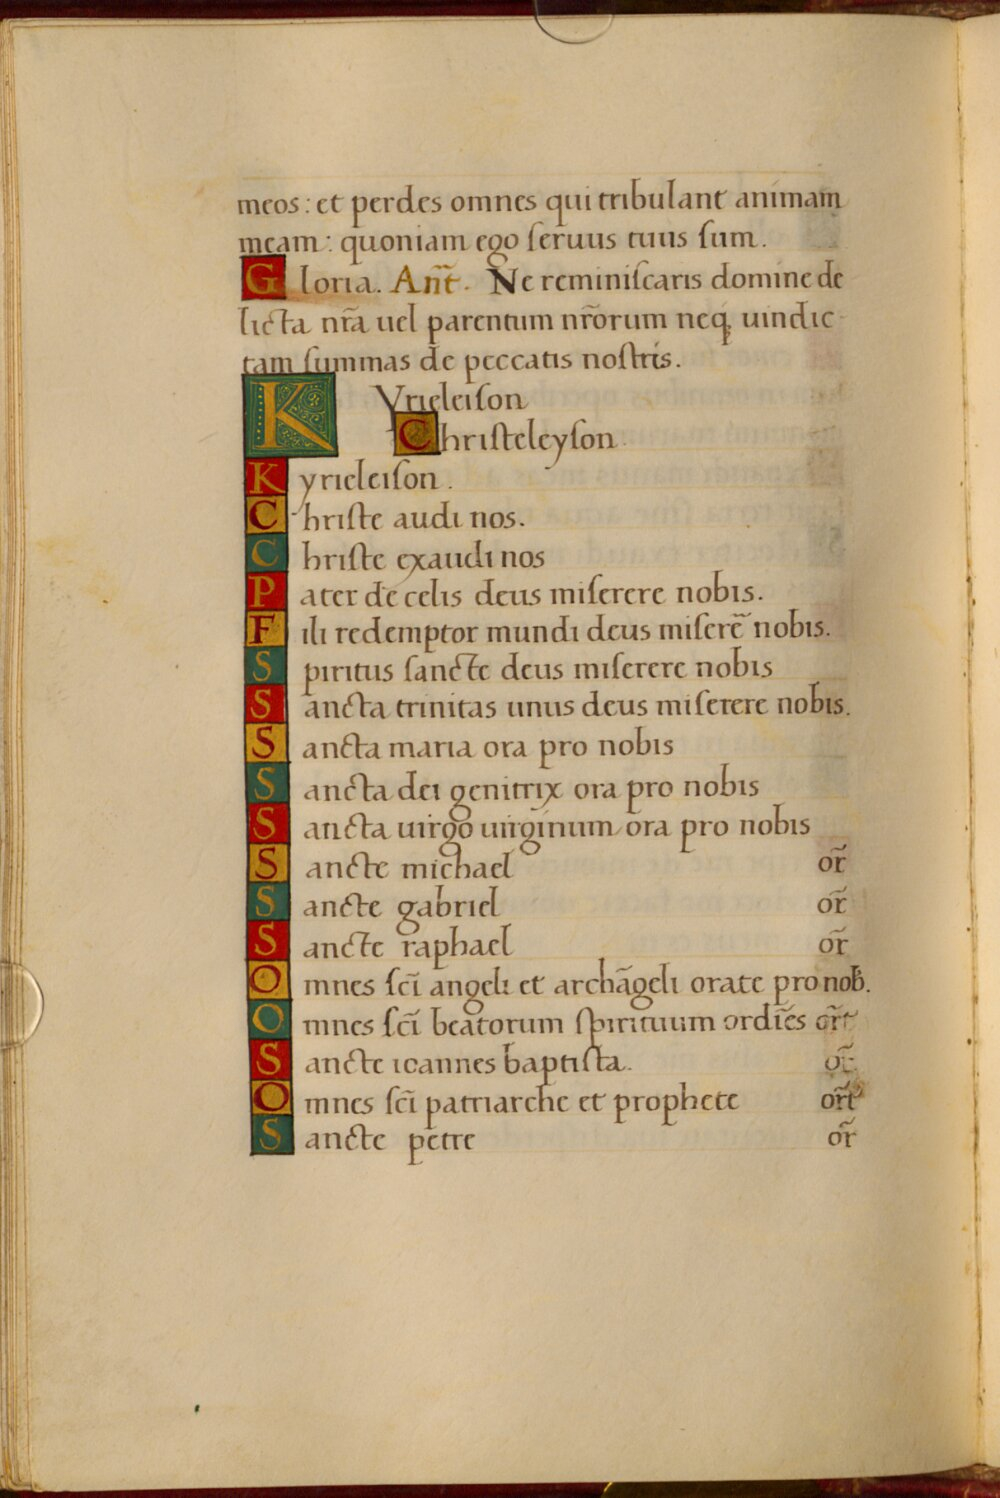 meos: et perdes omnes qui tribulant animam
meam: quoniam ego ſeruus tuus ſum.
Gloria. Añt. Ne reminiſcaris domine de
licta nr̃a uel parentum nr̃orum neq; uindic
tam ſummas de peccatis noſtris.
KYrieleiſon
Chriſteleyſon
Kyrieleiſon.
Chriſte audi nos.
Chriſte exaudi nos
Pater de celis deus miſerere nobis.
Fili redemptor mundi deus miſerẽ nobis.
Spiritus ſancte deus miſerere nobis
Sancta trinitas unus deus miſerere nobis.
Sancta maria ora pro nobis
Sancta dei genitrix ora pro nobis
Sancta uirgo uirginum ora pro nobis
Sancte michael or̃
Sancte gabriel or̃
Sancte raphael or̃
Omnes ſcĩ angeli et archãgeli orate pro nob.
Omnes ſcĩ beatorum ſpirituum ordiẽs or̃t
Sancte ioannes baptiſta. or̃
Omnes ſcĩ patriarche et prophete or̃t
Sancte petre or̃